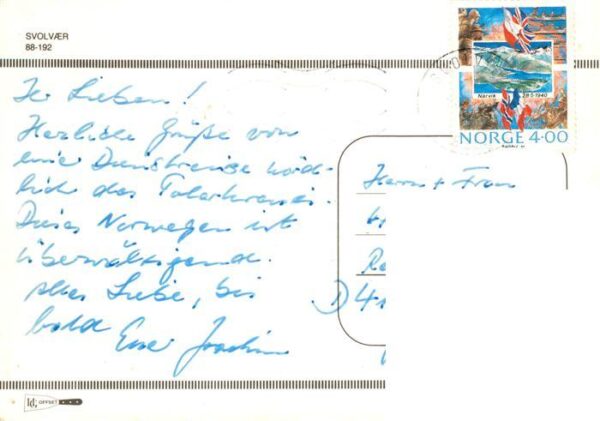 SVOLVÆR
88-192
Ihr Lieben!
Herzliche Grüße von
eine Dienstreise nörd-
lich des Polarkreises.
Dieses Norwegen ist
überwältigend.
Alles Liebe, bis
bald Euer Joachim
Herrn + Frau
D 4
Narvik 28·5·1940
NORGE 4·00
OFFSET